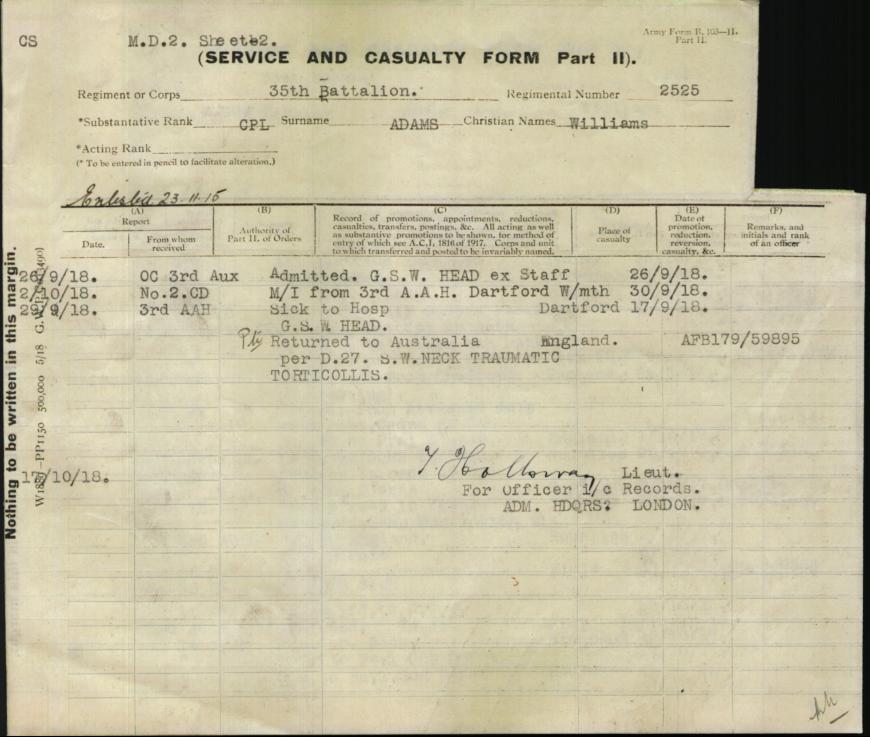 CS
M.D.2. Sheet 2.
Army Form B. 103—II.
Part II.
(SERVICE AND CASUALTY FORM Part II).
Regiment or Corps 35th Battalion. Regimental Number 2525
*Substantive Rank CPL Surname ADAMS Christian Names Williams
*Acting Rank
(* To be entered in pencil to facilitate alteration.)
Enlisted 23.11.15
(A) Report
Date.
From whom received
(B)
Authority of Part II. of Orders
(C)
Record of promotions, appointments, reductions, casualties, transfers, postings, &c. All acting as well as substantive promotions to be shown, for method of entry of which see A.C.I., 1816 of 1917. Corps and unit to which transferred and posted to be invariably named.
(D)
Place of casualty
(E)
Date of promotion, reduction, reversion, casualty, &c.
(F)
Remarks, and initials and rank of an officer
26/9/18. OC 3rd Aux Admitted. G.S.W. HEAD ex Staff 26/9/18.
2/10/18. No.2.CD M/I from 3rd A.A.H. Dartford W/mth 30/9/18.
29/9/18. 3rd AAH Sick to Hosp Dartford 17/9/18.
G.S.W. HEAD.
Returned to Australia England. AFB179/59895
per D.27. S.W.NECK TRAUMATIC
TORTICOLLIS.
17/10/18.
T. Holloway Lieut.
For Officer i/c Records.
ADM. HDQRS: LONDON.
3
Nothing to be written in this margin.
PP1150 500,000 5/18